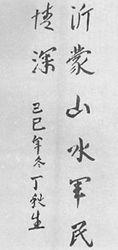 沂蒙山水军民
情深
己巳年冬丁秋生